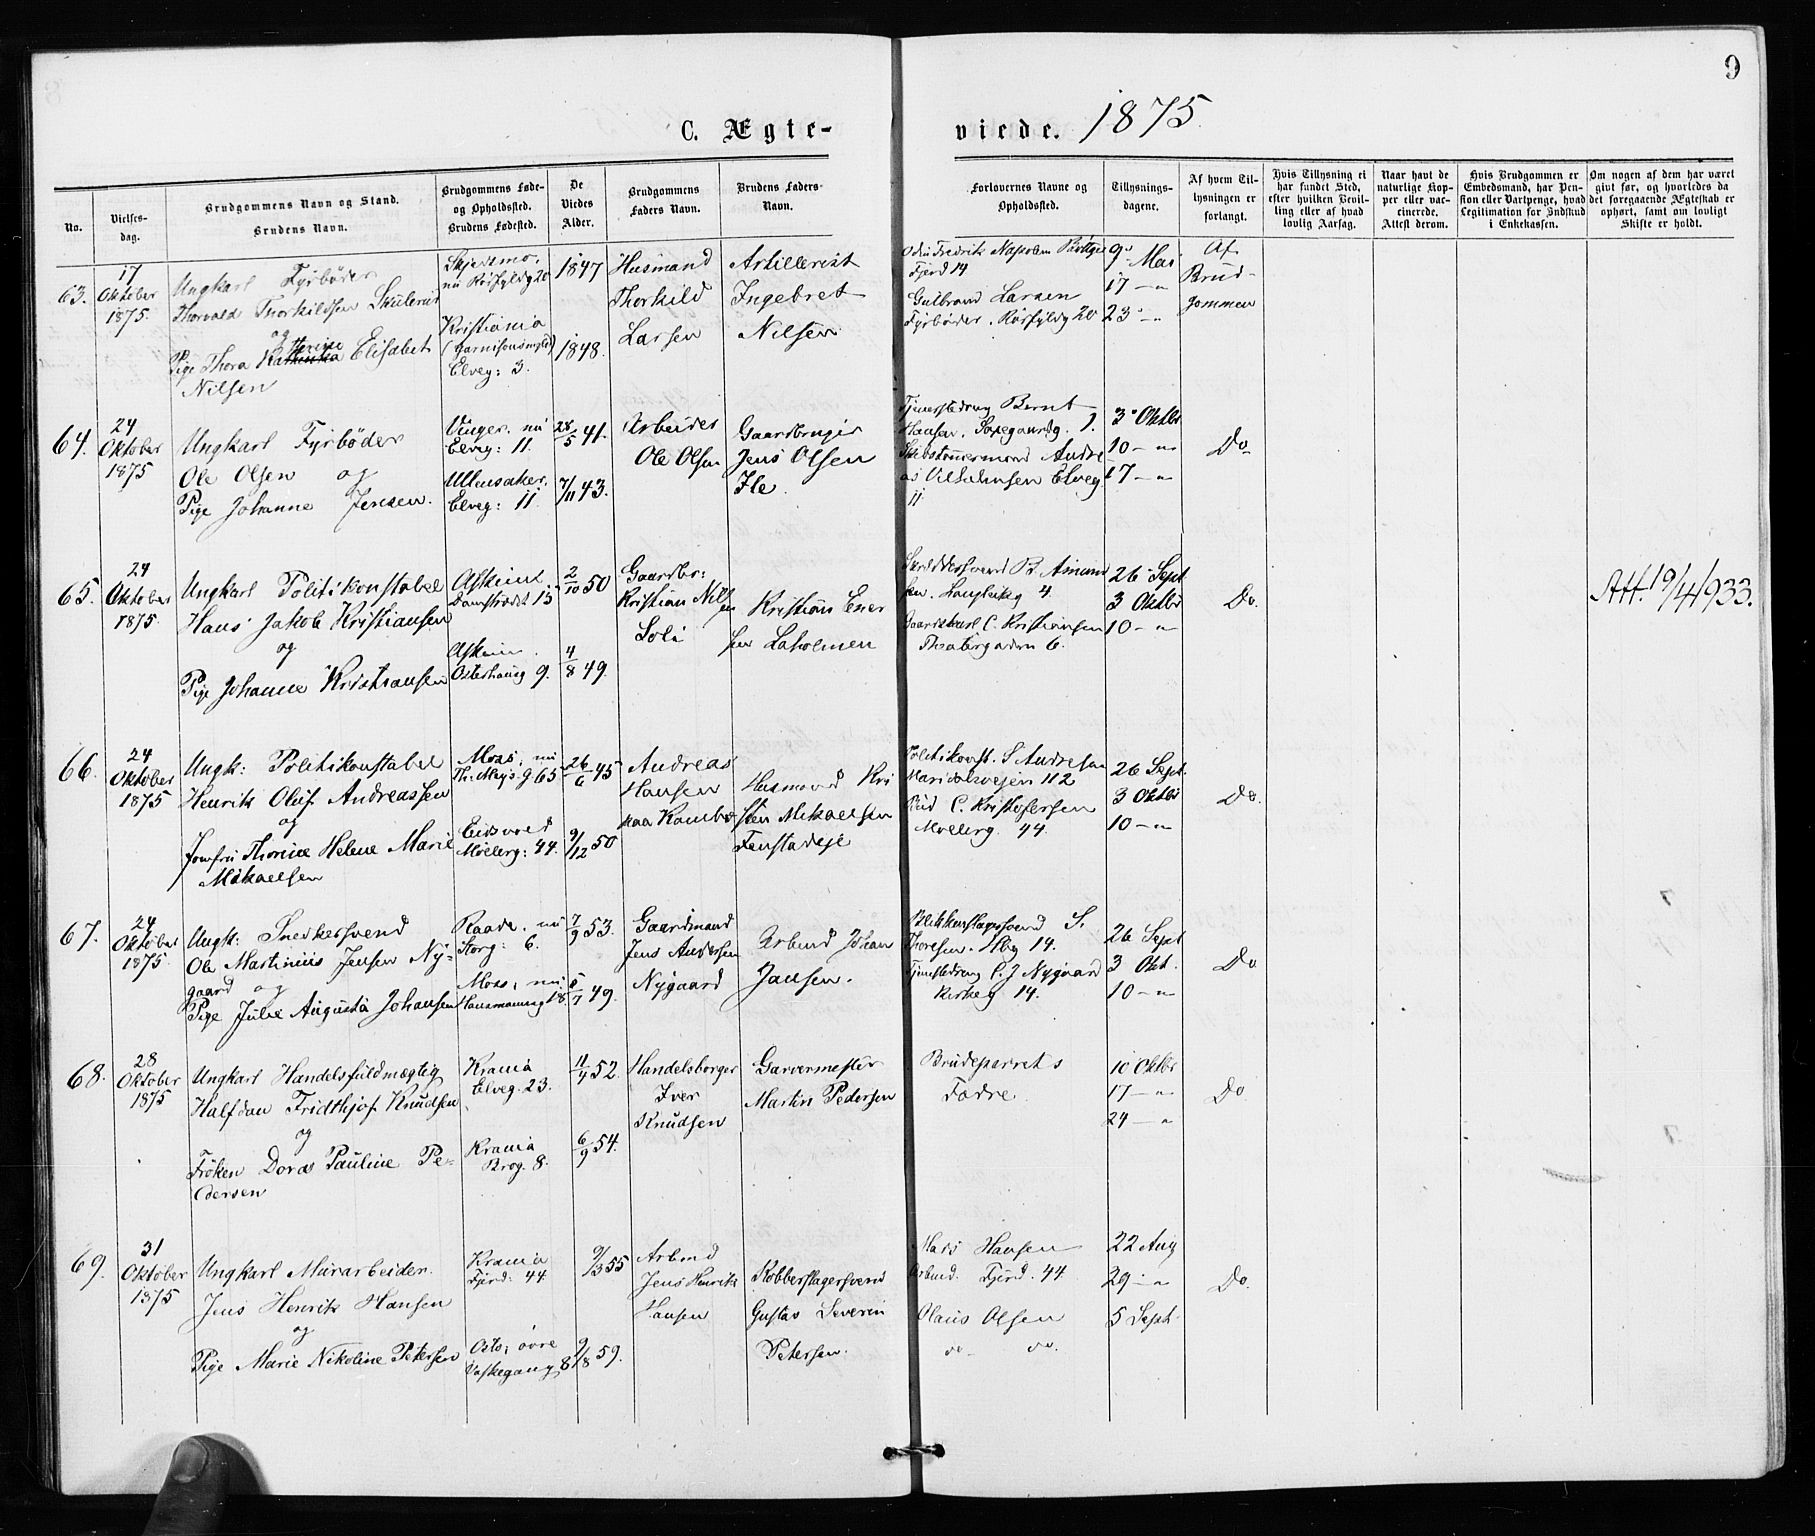 9
C. Ægte-
viede. 1875.
No.
Vielses-
dag.
Brudgommens Navn og Stand.
Brudens Navn.
Brudgommens Føde-
og Opholdsted.
Brudens Fødested.
De
Viedes
Alder.
Brudgommens
Faders Navn.
Brudens Faders
Navn.
Forlovernes Navne og
Opholdsted.
Tillysnings-
dagene.
Af hvem Til-
lysningen er
forlangt.
Hvis Tillysning ei
har fundet Sted,
efter hvilken Bevil-
ling eller af hvad
lovlig Aarsag.
Naar havt de
naturlige Kop-
per eller vac-
cinerede.
Attest derom.
Hvis Brudgommen er
Embedsmand, har Pen-
sion eller Vartpenge, hvad
Legitimation for Indskud
i Enkekassen.
Om nogen af dem har været
givt før, og hvorledes da
det foregaaende Ægteskab er
ophørt, samt om lovligt
Skifte er holdt.
63.
17
Oktober
1875.
Ungkarl Fyrbøder
Thorvald Thorkildsen Skulerud
og
Pige Thora Elisabet
Nilsen
Skjedsmo,
nu 20
Kristiania
Elveg: 3.
1847
1848.
Husmand
Thorkild
Larsen
Artillerist
Ingebret
Nilsen
Fredrik Napoleon
Fjerd 14
Gulbrand Larsen
Fyrbøder. 20
9 Mai
17 — "
23 — "
Af
Brud-
gommen
64.
24
Oktober
1875
Ungkarl Fyrbøder
Ole Olsen og
Pige Johanne Jensen.
Vinger. nu
Elveg: 11.
Ullensaker.
Elveg: 11.
28/5 41.
7/11 43.
Arbeider
Ole Olsen
Gaardbruger
Jens Olsen
Ile.
Bernt
Hansen. 1.
Andre
as Vilhelmsen Elveg.
11
3 Oktbr
10 — "
17 — "
Do
65.
24
Oktober
1875.
Ungkarl Politikonstabel
Hans Jakob Kristiansen
og
Pige Johanne Kristiansen
Askim
Damstrædet 15
Askim.
Østerhausg 9.
2/10 50
4/8 49.
Gaardbr:
Kristian Nils
sen
Soli
Kristian Ener
sen Laholmen
B. Amund
sen. 4
C. Kristiansen
Theatergaden 6.
26 Sept
3 Oktbr
10 — "
Do.
Att. 19/4 1933.
66.
24
Oktober
1875
Ungk: Politikonstabel
Henrik Oluf Andreassen
og
Jomfru Thorine Helene Marie
Mikaelsen
Moss, nu
Th: Meyers g 65
Eidsvold
Møllerg: 44.
26/6 45
9/12 50
Andreas
Hansen
paa Rambøl
Husmand Kri
sten Mikaelsen
Fenstadeje
Politikonst. S Andresen
Maridalsvejen 112
C. Kristofersen
Møllerg. 44.
26 Sept.
3 Oktbr
10 — "
Do.
67.
24
Oktober
1875.
Ungk: Snedkersvend
Ole Martinius Jensen Ny-
gaard og
Pige Julie Augusta Johansen
Raade. nu
Storg: 6.
Moss, nu
Hausmannsg 18.
7/9 53.
5/7 49.
Gaardmand
Jens Andersen
Nygaard
Arbmd Johan
Jansen.
S.
Thoresen. 14.
C. J Nygaard
Kirkeg 14.
26 Sept
3 Okt.
10 — "
Do
68.
28
Oktober
1875
Ungkarl Handelsfuldmægtig
Halfdan Fridthjof Knudsen
og
Frøken Dorae Pauline Pe-
dersen
Krania
Elveg. 23.
Krania
Brog. 8.
11/4 52.
6/9 54.
Handelsborger
Iver
Knudsen
Garvermester
Martin Pedersen
Brudeparrets
Fædre.
10 Oktbr
17 — "
24 — "
Do
69.
31
Oktober
1875
Ungkarl Murarbeider.
Jens Henrik Hansen
og
Pige Marie Nikoline Petersen
Krania
Fjerd: 44.
Oslo, øvre
Vaskegang 8
9/3 55
9/8 59.
Arbmd
Jens Henrik
Hansen
Kobberslagersvend
Gustav Severin
Petersen.
Mads Hansen
Arbmd. Fjerd. 44.
Olaus Olsen
do do.
22 Aug
29 — "
5 Sept.
Do.